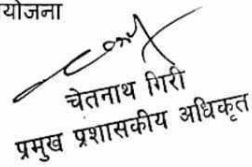 योजना
चेतनाथ गिरी
प्रमुख प्रशासकीय अधिकृत